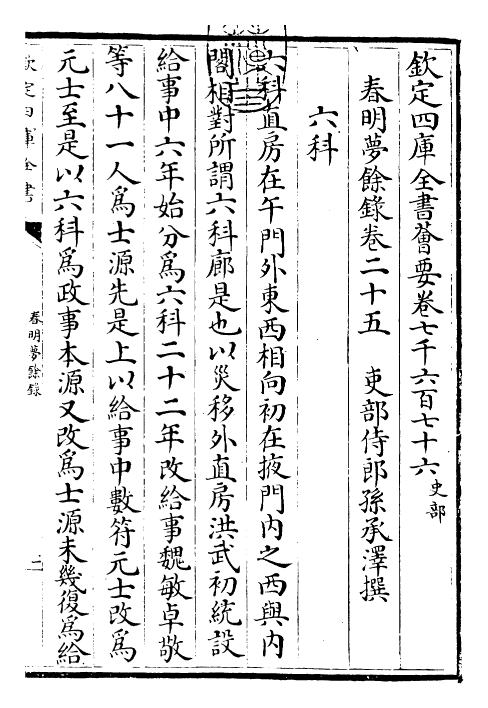 欽定四庫全書薈要卷七千六百七十六史部
春明夢餘錄卷二十五　吏部侍郎孫承澤撰
六科
六科直房在午門外東西相向初在掖門內之西與內
閣相對所謂六科廊是也以災移外直房洪武初統設
給事中六年始分爲六科二十二年改給事魏敏卓敬
等八十一人爲士源先是上以給事中數符元士改爲
元士至是以六科爲政事本源又改爲士源未幾復爲給
欽定四庫全書
春明夢餘錄